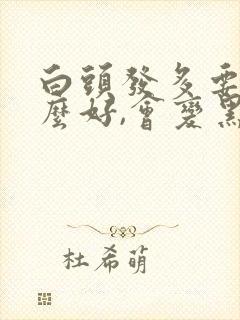 白頭發多要
麼好,會變黑
杜希萌